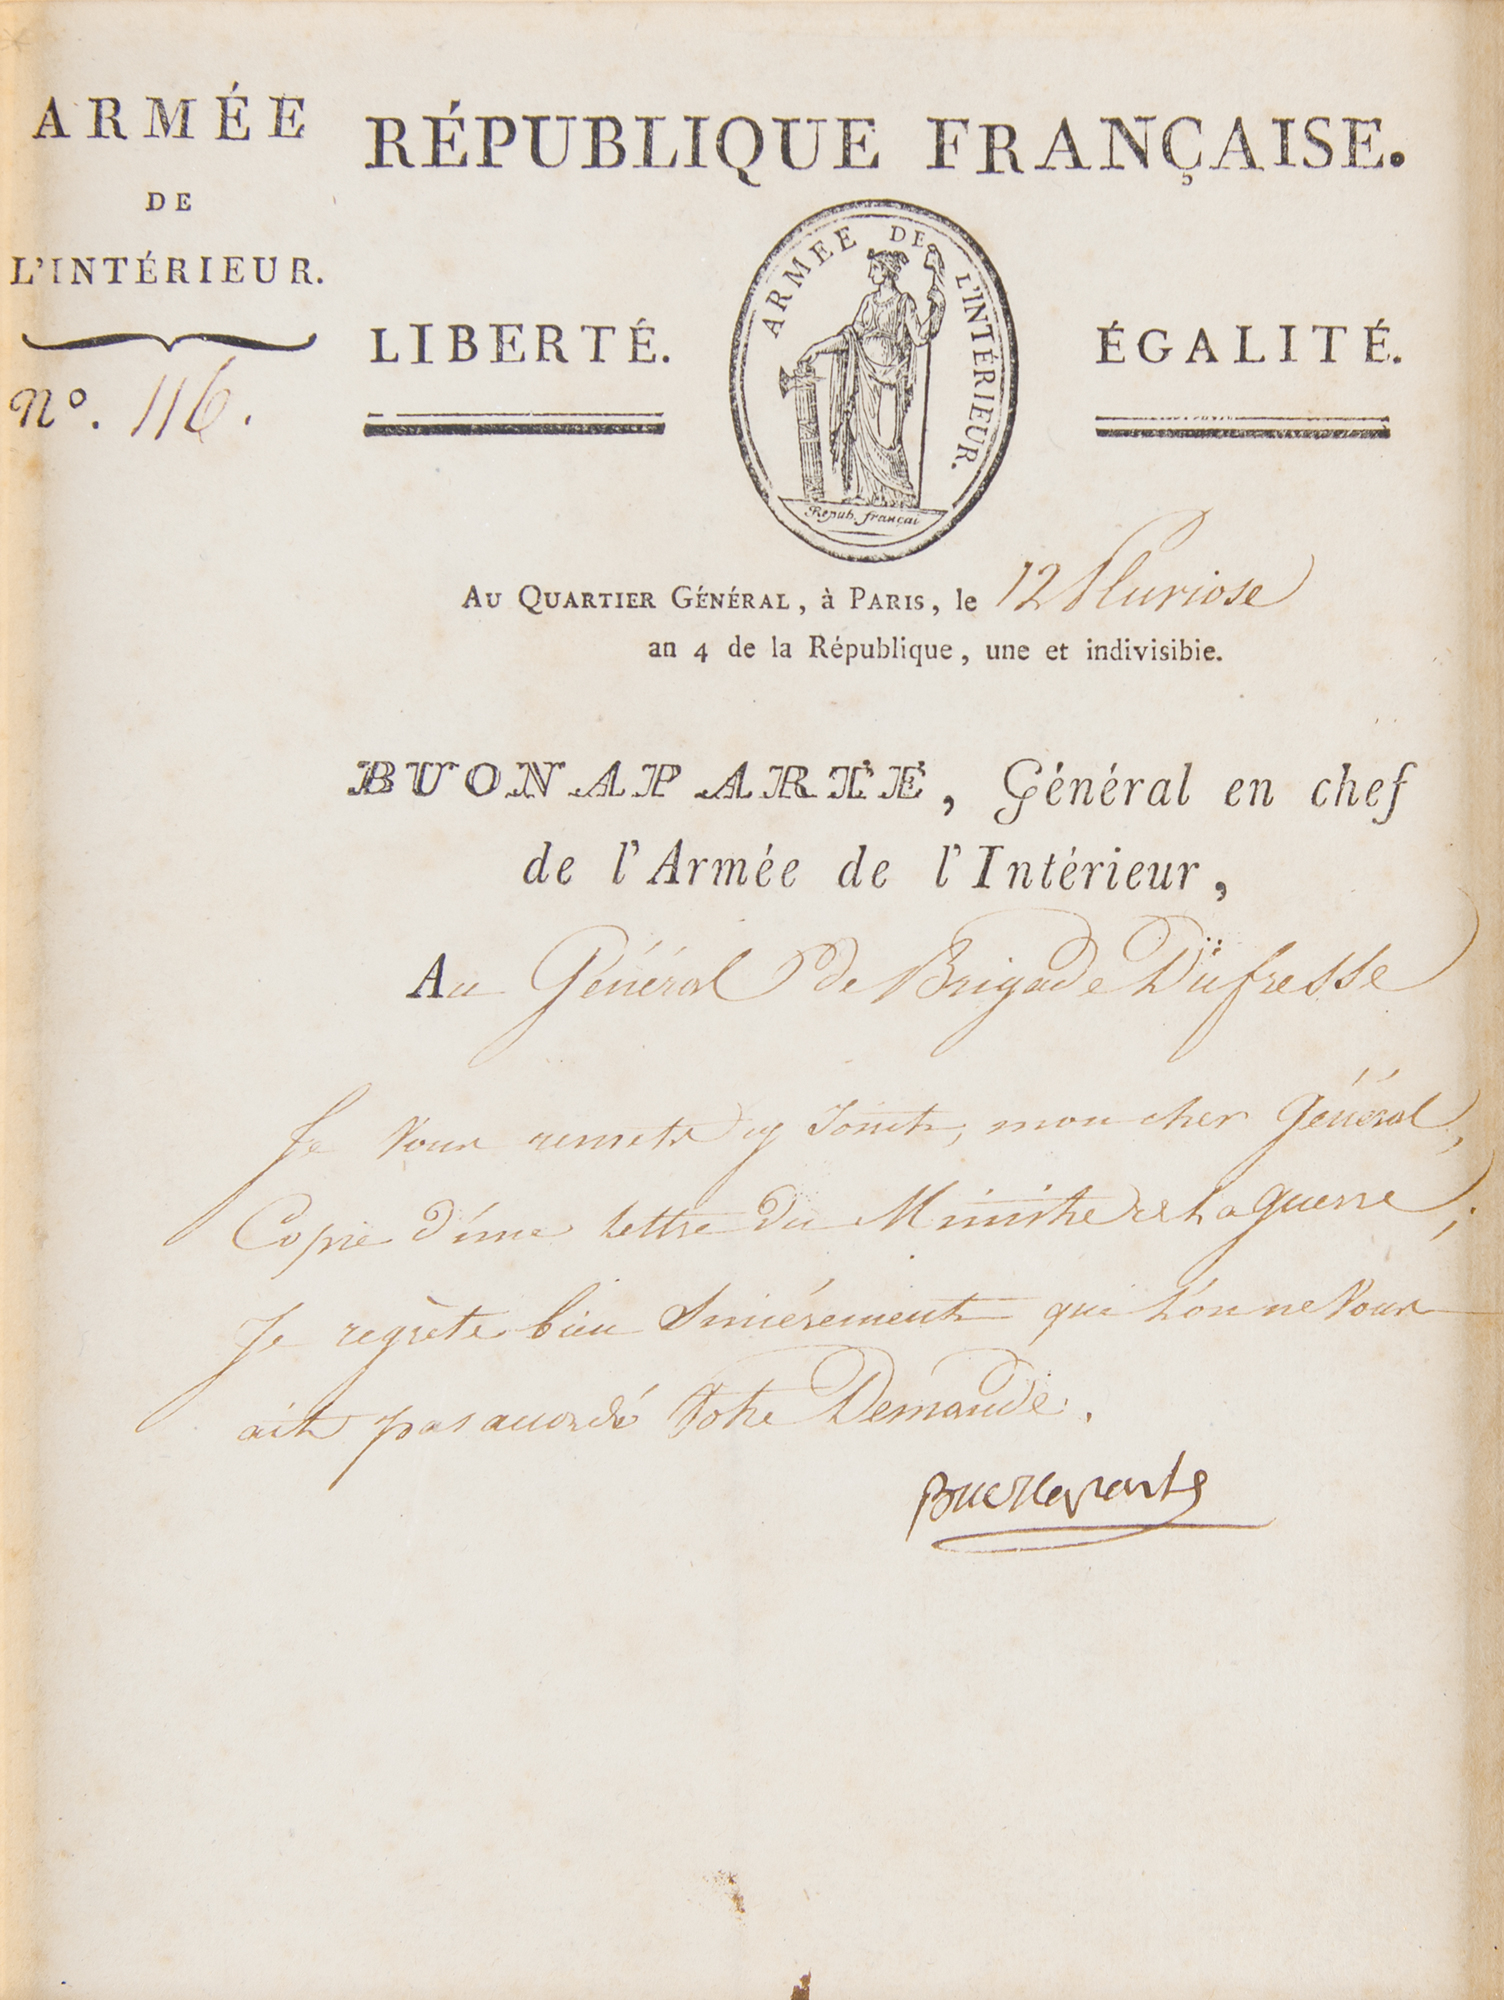 ARMÉE
DE
L'INTÉRIEUR.
N°. 116.
RÉPUBLIQUE FRANÇAISE.
LIBERTÉ.
ÉGALITÉ.
ARMÉE DE L'INTÉRIEUR.
Repub. françai
AU QUARTIER GÉNÉRAL, à PARIS, le 12 Pluviose
an 4 de la République, une et indivisibie.
BUONAPARTE, Général en chef
de l'Armée de l'Intérieur,
Au Général de Brigade Dufresse
Je vous remets cy Joint, mon cher Général,
Copie d'une lettre du Ministre de la Guerre;
Je regrète bien Sincérement que l'on ne vous
ait pas accordé votre Demande.
Buonaparte